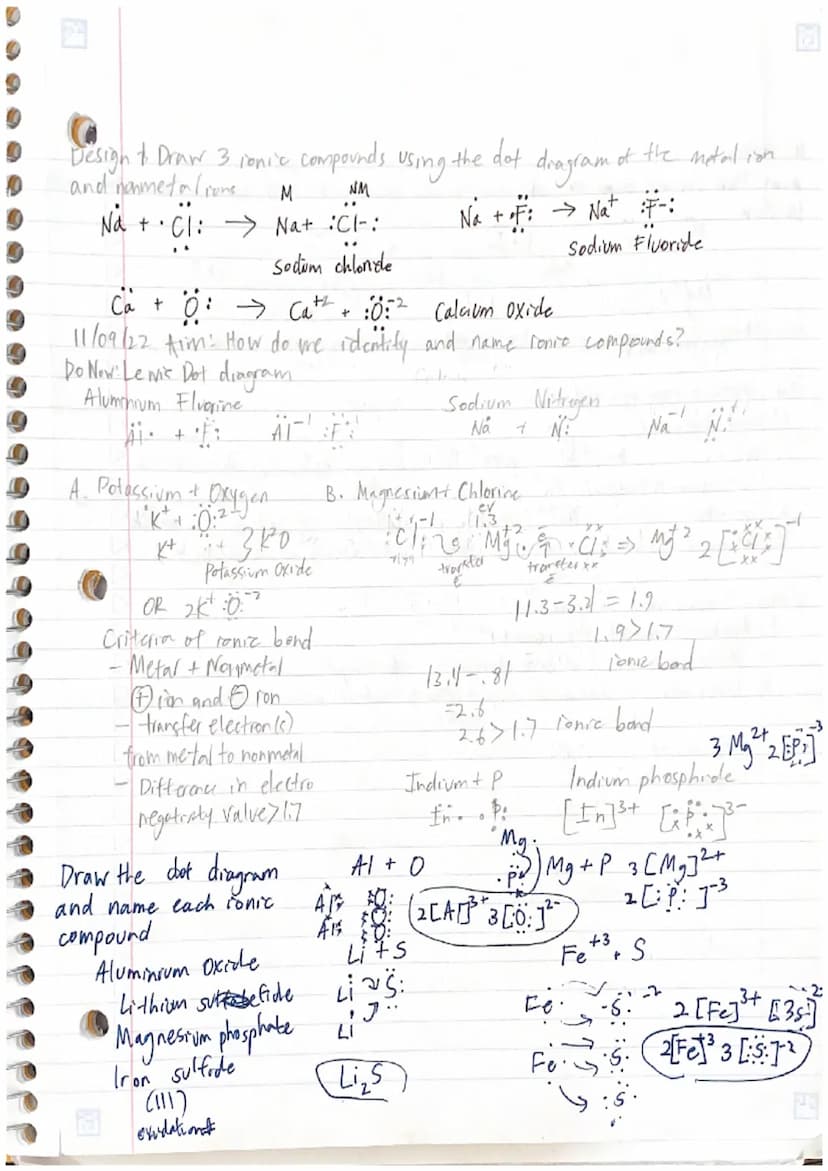 Design & Draw 3 ionic compounds using the dot diagram of the metal ion
and nonmetal ions
M NM
Na + ·Cl: → Na+ :Cl-: Na + ·F: → Na+ :F-:
Sodium chloride Sodium Fluoride
Ca + O: → Ca+2 + :O:-2 Calcium oxide
11/09/22 Aim: How do we identify and name ionic compounds?
Do Now: Lewis Dot diagram
Aluminium Fluorine Sodium Nitrogen
Al· + ·F: Al-1 :F: Na + N: Na-1 N:
A. Potassium + Oxygen B. Magnesium + Chlorine
K+ + :O:-2
K+ } K2O
:Cl: -1 1.3 Mg+2 ·Cl: ⇒ Mg+2 2[Cl]-1
transfer transfer
Potassium Oxide
OR 2K+ :O:-2
|1.3-3.2| = 1.9
1.9>1.7
ionic bond
Criteria of ionic bond
- Metal + Nonmetal
(+) ion and (-) ion
- transfer electron(s)
from metal to nonmetal
- Difference in electro
negativity value>1.7
|3.4-.8|
=2.6
2.6>1.7 ionic bond
3 Mg2+ 2[:P:]-3
Indium + P Indium phosphide
In· ·P: [In]3+ [P]3-
Draw the dot diagram
and name each ionic
compound
Aluminium Oxide
Lithium sulfide
Magnesium phosphate
Iron sulfide
(III)
oxidation#
Al + O
Al :O:
:O:
Al :O:
2[Al]3+ 3[:O:]2-
Mg·
·P·
Mg + P 3[Mg]2+
2[:P:]-3
Li + S
Li S:
Li
Li2S
Fe+3 + S
Fe· ·S: -2 2[Fe]3+ [3S]2-
Fe· ·S: 2[Fe]+3 3[:S:]-2
:S·